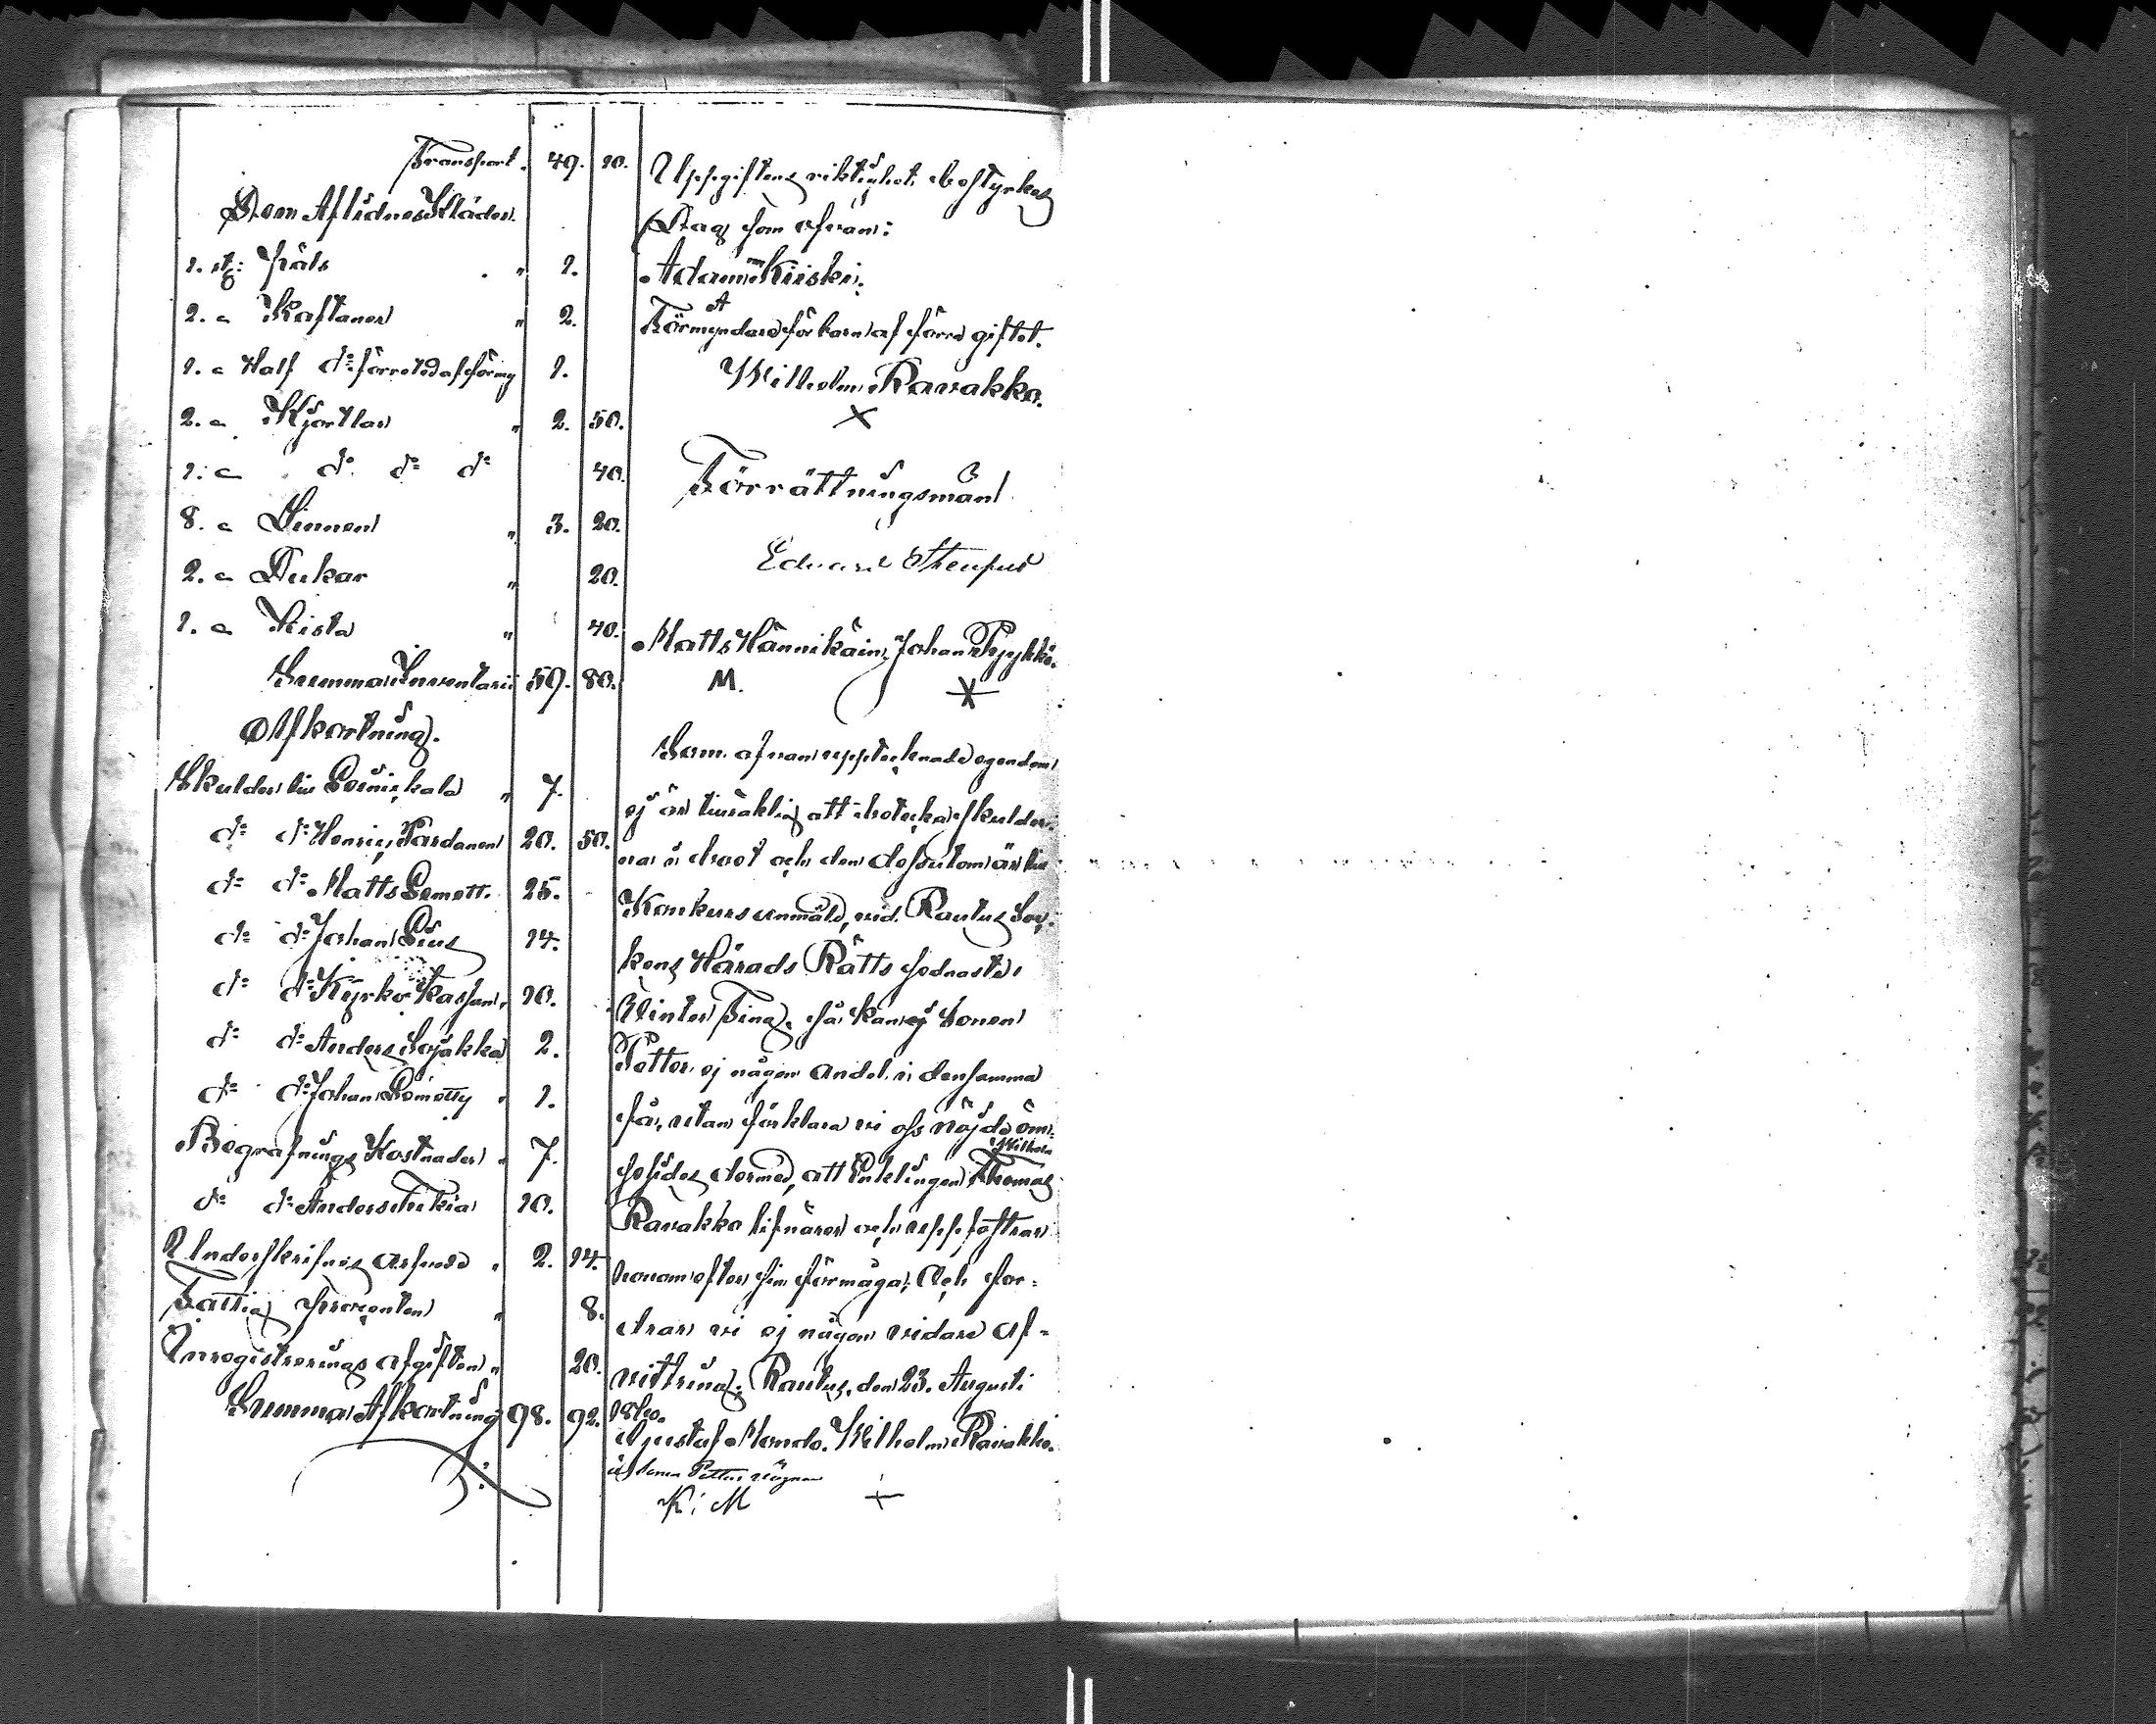 Transport. 49. 10.
Den Aflidnes Kläder.
1. st: Päls " 1.
2. " Kaftaner " 2.
1. " Half do förrätedas förmg 1.
2. " Kjortlar " 2. 50.
1. " do do do 40.
8. " Linnen " 3. 20.
2. " Dukar " 20.
1. " Kista " 40.
Summa Inventarii 59. 80.
Afkortning.
Skulder till " 7.
do do Henric Pardanen 20. 50.
do do Matts Lemett. 25.
do do Johan 14.
do do Kyrko Kassan " 10.
do do Anders 2.
do do Johan Lemetty " 1.
Begrafnings Kostnader " 7.
do do Anders 10.
Underskrifnes arfvode " 2. 14.
Fattig procenten " 8.
Inregistrerings afgiften " 20.
Summa Afkortning 98. 92.
Uppgiftens riktighet bestyrkes
Dag som ofvan:
Adam Kiiski.
A
Förmyndare för barn af förra giftet.
Wilhelm Ravakko.
X
Förrättningsmän
Eduard
Matts Hännikäin, Johan Pyykkö.
M.
Som ofvan upptecknade egendom
ej är tillräklig att betäcka skulder-
na i boet och den dessutom är till
Konkurs anmäld, vid Rautus Soc-
kens Härads Rätts sednaste
Winter Ting, så kan ej Sonen
Petter ej någon andel i densamma
få, utan förklara vi oss nöjde öm-
sesides dermed, att Enklingen Thomas Wilhelm
Ravakko lifnärer och uppfostrar
honom efter sin förmåga; Och for-
drar vi ej någon vidare af-
vittring; Rautus, den 23. Augusti
Gustaf Mondo. Wilhelm Ravakko.
å Sonen Petters vägnar
K: M +